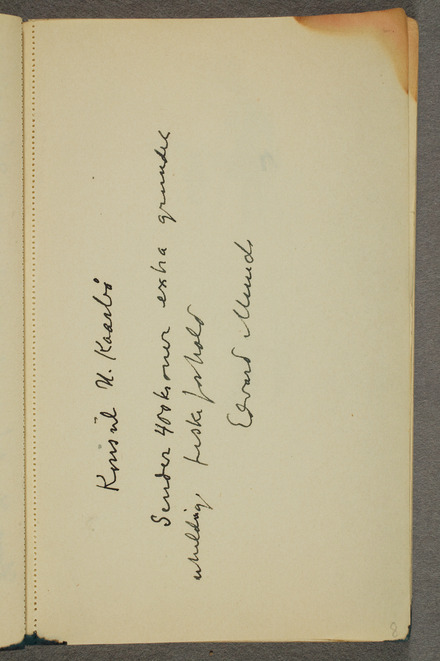 Konsul N. Kaarbö
Sender 400 kroner extra grundet
uheldige, triste forhold
Edvard Munch